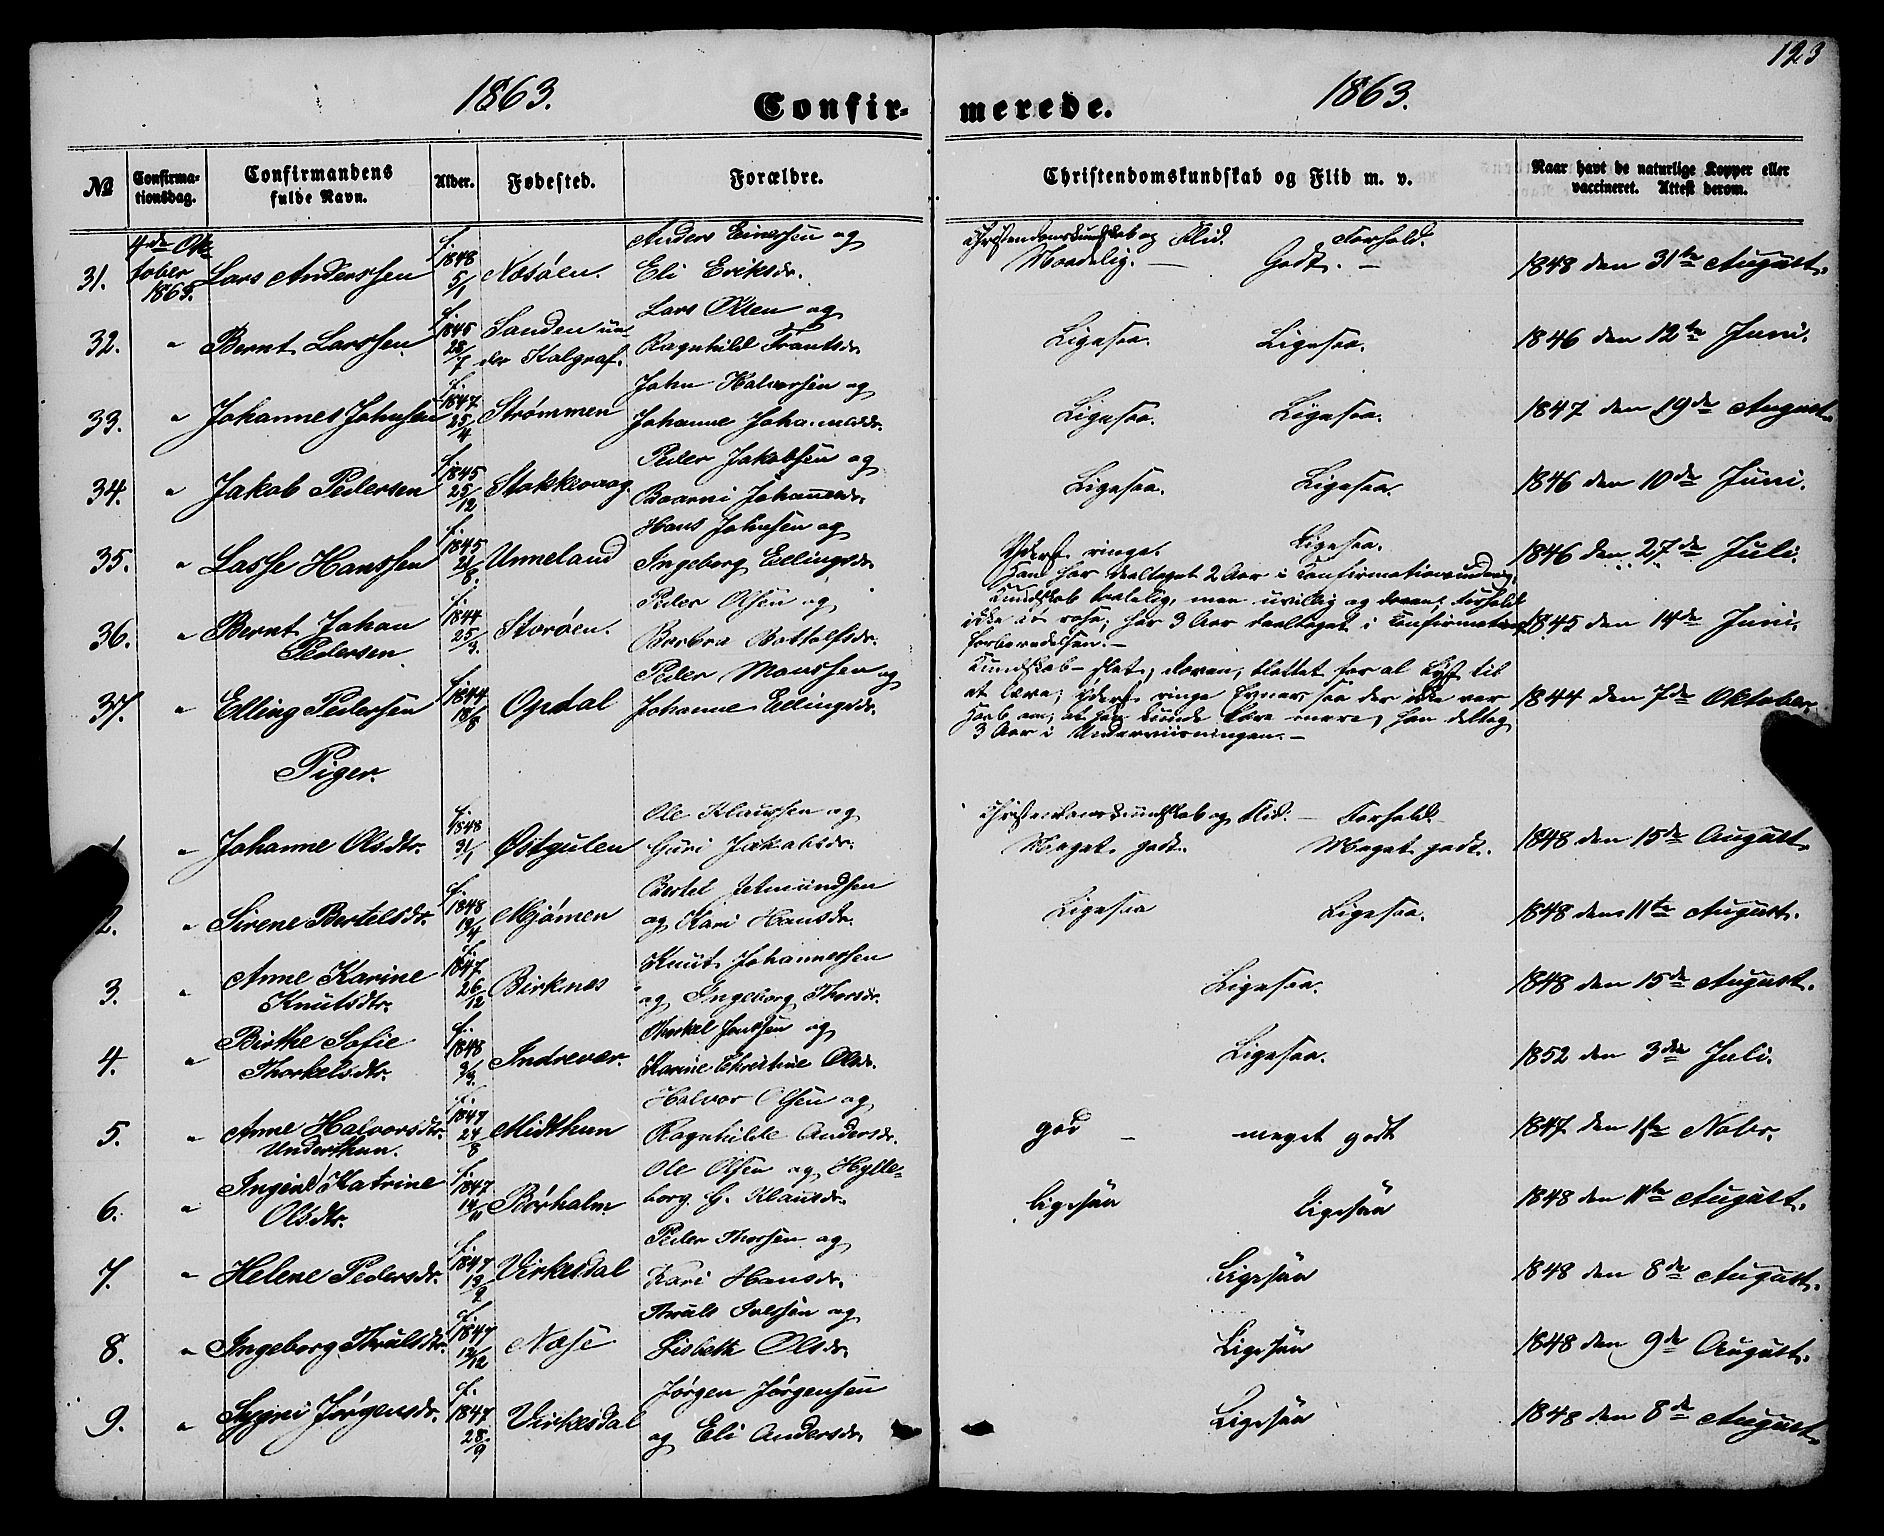 123
1863.
1863.
Confir-
merede.
№
Confirma-
tionsdag.
Confirmandens
fulde Navn.
Alder.
Fødested.
Forældre.
Christendomskundskab og Flid m. v.
Naar havt de naturlige Kopper eller
vaccineret. Attest derom.
31.
4de Ok-
tober
1863.
Lars Anderssen
f. 1848 5/1
Næsøen.
Anders Einersen og
Eli Eriksdr.
Christendomskundskab og Flid. Forhold.
Maadelig. — Godt. —
1848 den 31te August.
32. " Bernt Larssen
f. 1845 28/7
Sanden un-
der Kalgraf.
Lars Olsen og
Ragnhild Frantsdr.
Ligesaa. Ligesaa.
1846 den 12te Juni.
33. " Johannes Johnsen
f. 1847 25/4
Strømmen
John Halvorsen og
Johanne Johannesdr.
Ligesaa. Ligesaa.
1847 den 19de August.
34. " Jakob Pedersen
f. 1845 25/12
Stakkevaag
Peder Jakobsen og
Johannesdr.
Ligesaa. Ligesaa.
1846 den 10de Juni.
35. " Lasse Hanssen
f. 1845 21/8.
Unneland
Hans Johnsen og
Ingeborg Ellingsdr.
Yderst ringe. Ligesaa.
Han har deeltaget 2 Aar i Confirmationsunderv.
1846 den 27de Juli.
36. " Bernt Johan
Pedersen
f. 1844 25/3.
Storøen.
Peder Olsen og
Barbra Battolfsdr.
Kundskab taalelig, men uvillig og doven; Forhold
ikke at rose; har 3 Aar deeltaget i Confirmations
forberedelsen. —
1845 den 14de Juni.
37. " Elling Pedersen
f. 1844 18/8
Opdal
Peder Monssen og
Johanne Ellingsdr.
Kundskab slet, doven, blottet for al Lyst til
at lære; yderst ringe Evner saa der ikke var
Haab om, at han kunde lære mere, han deltog
3 Aar i Underviisningen. —
1844 den 7de Oktober.
Piger.
1 " Johanne Olsdtr.
f. 1848 31/1
Østgulen
Ole Klaussen og
Guri Jakobsdr.
Christendomskundskab og Flid. — Forhold.
Meget godt. Meget godt.
1848 den 15de August.
2. " Sirene Bertelsdr.
f. 1848 19/4
Mjømen
Bertel Jetmundsen
og Kari Hansdr.
Ligesaa Ligesaa.
1848 den 11te August.
3. " Anne Karine
Knutsdtr.
f. 1847 26/12
Birknes
Knut Johannessen
og Ingeborg Thorsdr.
Ligesaa.
1848 den 15de August.
4. " Birthe Sofie
Thorkelsdtr.
f. 1848 3/3.
Indrevær.
Thorkel Jenssen og
Karine Christine Olsdr.
Ligesaa.
1852 den 3die Juli.
5. " Anne Halvorsdtr.
Underthun.
f. 1847 24/8
Midthun
Halvor Olsen og
Ragnhilde Andersdr.
god — meget godt
1847 den 1ste Nobr.
6. " Katrine
Olsdtr.
f. 1847 14/11
Børholm.
Ole Olsen og Hylle-
borg G. Klausdr.
ligesaa ligesaa
1848 den 11te August.
7. " Helene Pedersdr.
f. 1847 19/2
Virkesdal
Peder Thorsen og
Kari Hansdr.
Ligesaa
1848 den 8de August.
8. " Ingeborg Thrulsdtr.
f. 1847 12/12
Næse
Thruls Ivarsen og
Lisbeth Olsdr.
Ligesaa
1848 den 9de August.
9. " Sygni Jørgensdr.
f. 1847 28/9
Virkesdal
Jørgen Jørgensen
og Eli Andersdr.
Ligesaa
1848 den 8de August.